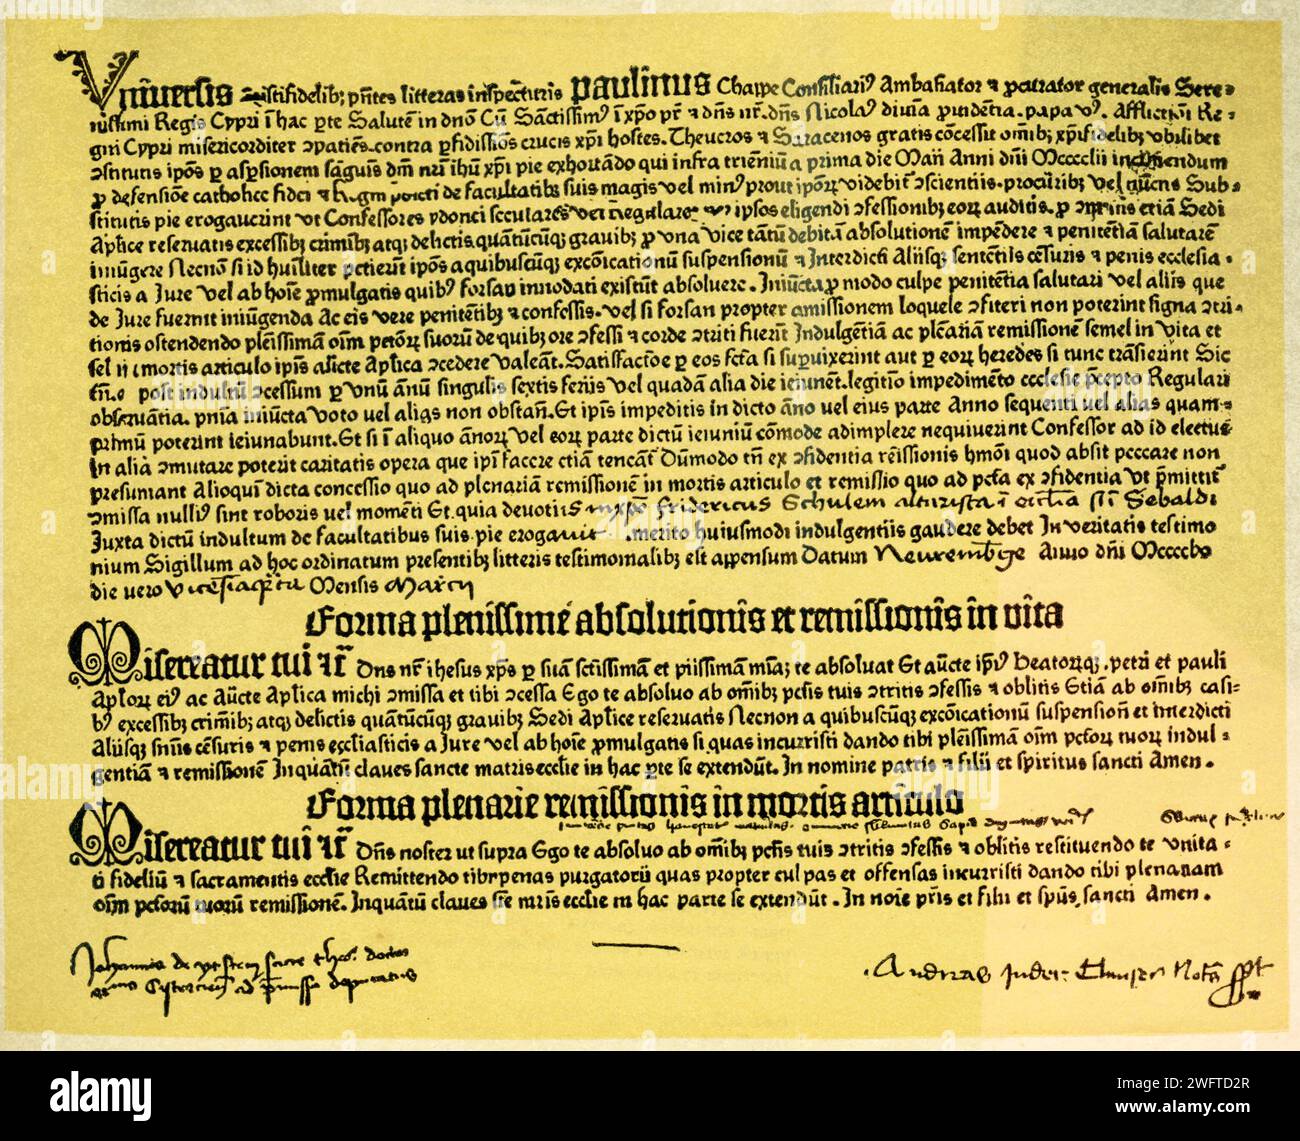 Vniuersis Cristifidelibꝫ pn̄tes litteras inspectur̄is paulinus Chappe Consiliariꝰ Ambasiator ⁊ ꝓcurator generalis Sere⸗
nissimi Regis Cypri ī hac ꝑte Salutē in dn̄o Cū Sāctissimꝰ ī xp̄o pr̄ ⁊ dn̄s nr̄. dn̄s Nicolaꝰ diuīa ꝓuidētia. papa vꝰ. Afflictiōi Re⸗
gni Cypri misericorditer ↄpatiēs. contra ꝑfidissiōs crucis xp̄i hostes. Theucros ⁊ Saracenos gratis cōcessit om̄ibꝫ xp̄ifidelibꝫ vbilibet
ↄstitutis ip̄os ꝑ aspersionem sāguīs dn̄i nr̄i ih̄u xp̄i pie exhortādo qui infra triēniū a prima die Maii Anni dn̄i Mcccclii incipiendum
ꝓ defensiōe catholice fidei ⁊ Regni ꝓdicti de facultatibꝫ suis magis vel minꝰ prout ip̄oꝝ videbit̄ ↄscientiis. procur̄ibꝫ vel nūciis Sub⸗
stitutis pie erogauerint vt Confessores ydonei seculares vel Regulares ip̄sos eligendi ↄfessionibꝫ eoꝝ auditis. ꝓ ↄmissis etiā Sedi
Aplīce reseruatis excessibꝫ crimībꝫ atqꝫ delictis quātūcūqꝫ grauibꝫ ꝓ vna vice tātū debitā absolutionē impēdere ⁊ penitētiā salutarē
iniūgere Necnō si id hūiliter petierīt ip̄os a quibuscūqꝫ excōicationū suspensionū ⁊ Interdicti Aliisqꝫ sentētiis cēsuris ⁊ penis ecclesia⸗
sticis a Jure vel ab hoīe ꝓmulgatis quibꝰ forsan innodati existūt absoluere. Iniūcta ꝓ modo culpe penitētia salutari vel aliis que
de Jure fuerint iniūgenda Ac eis vere penitētibꝫ ⁊ confessis. vel si forsan propter amissionem loquele ↄfiteri non poterint signa ↄtri⸗
tionis ostendendo plēissimā oīm pctōꝝ suoꝝ de quibꝫ ore ↄfessi ⁊ corde ↄtriti fuerīt Indulgētiā ac plēariā remissionē semel in vita et
semel in mortis articulo ip̄is aūcte Aplīca ↄcedere valeāt. Satisfactōe ꝑ eos fc̄ta si supuixerint aut ꝑ eoꝝ heredes si tunc trāsierint Sic
tn̄ qꝫ post indultū ↄcessum ꝑ vnū ānū singulis sextis feriis vel quadā alia die ieiunēt. legitīo impedimēto ecclesie p̄cepto Regulari
obseruātia. pn̄ia iniūcta voto uel alias non obstan̄. Et ip̄is impeditis in dicto āno uel eius parte Anno sequenti uel alias quam⸗
primū poterint ieiunabunt. Et si ī aliquo ānoꝝ vel eoꝝ parte dictū ieiuniū cōmode adimplere nequiuerint Confessor ad id electus
In alia ↄmutare poterit caritatis opera que ip̄i facere etiā teneāt̄ Dūmodo tn̄ ex ↄfidentia rēissionis hmōi quod absit peccare non
presumant Alioqui dicta concessio quo ad plenariā remissionē in mortis articulo et remissio quo ad pctā ex ↄfidentia vt p̄mittit̄
ↄmissa nulliꝰ sint roboris uel momēti Et quia deuotus in xp̄o Fridericus Schulem altarista ī ecclia sti Sebaldi
Juxta dictū indultum de facultatibus suis pie erogauit merito huiusmodi indulgentiis gaudere debet In veritatis testimo
nium Sigillum ad hoc ordinatum presentibꝫ litteris testimonialibꝫ est appensum Datum Neurembgge Anno dn̄i Mccccꝉv
die uero vicesīaqrta Mensis Marcii
Forma plenissime absolutionis et remissionis in vita
Misereatur tui ⁊c̄ Dn̄s nr̄ ihesus xp̄s ꝑ suā sctīssimā et piissimā mīaꝫ te absoluat Et aūcte ip̄iꝰ beatorūqꝫ. petri et pauli
Apl̄oꝝ eiꝰ ac Aūcte Aplīca michi ↄmissa et tibi ↄcessa Ego te absoluo ab om̄ibꝫ pctīs tuis ↄtritis ↄfessis ⁊ oblitis Etiā ab om̄ibꝫ casi⸗
bꝰ excessibꝫ crimībꝫ atqꝫ delictis quātūcūqꝫ grauibꝫ Sedi Aplīce reseruatis Necnon a quibuscūqꝫ excōicationū suspension̄ et Interdicti
Aliisqꝫ sn̄iis cēsuris ⁊ penis eccl̄iasticis a Jure vel ab hoīe ꝓmulgatis si quas incurristi dando tibi plēissimā oīm pctōꝝ tuoꝝ indul⸗
gentiā ⁊ remissionē Inquātū claues sancte matris ecclīe in hac ꝑte se extendūt. In nomine patris ⁊ filii et spiritus sancti Amen.
Forma plenarie remissionis in mortis articulo
Misereatur tui ⁊c̄ Dn̄s noster ut supra Ego te absoluo ab om̄ibꝫ pctīs tuis ↄtritis ↄfessis ⁊ oblitis restituendo te vnita⸗
ti fidelium ⁊ sacramentis ecclīe Remittendo tibi penas purgatorii quas propter culpas et offensas incurristi dando tibi plenariam
oīm pctōrū tuorū remissionē. Inquātū claues sc̄e mr̄is ecclīe in hac parte se extendūt. In noīe pr̄is et filii et sp̄us sancti Amen.
Johannes de
Andreas Notā
alamy
Image ID: 2WFTD2R
www.alamy.com